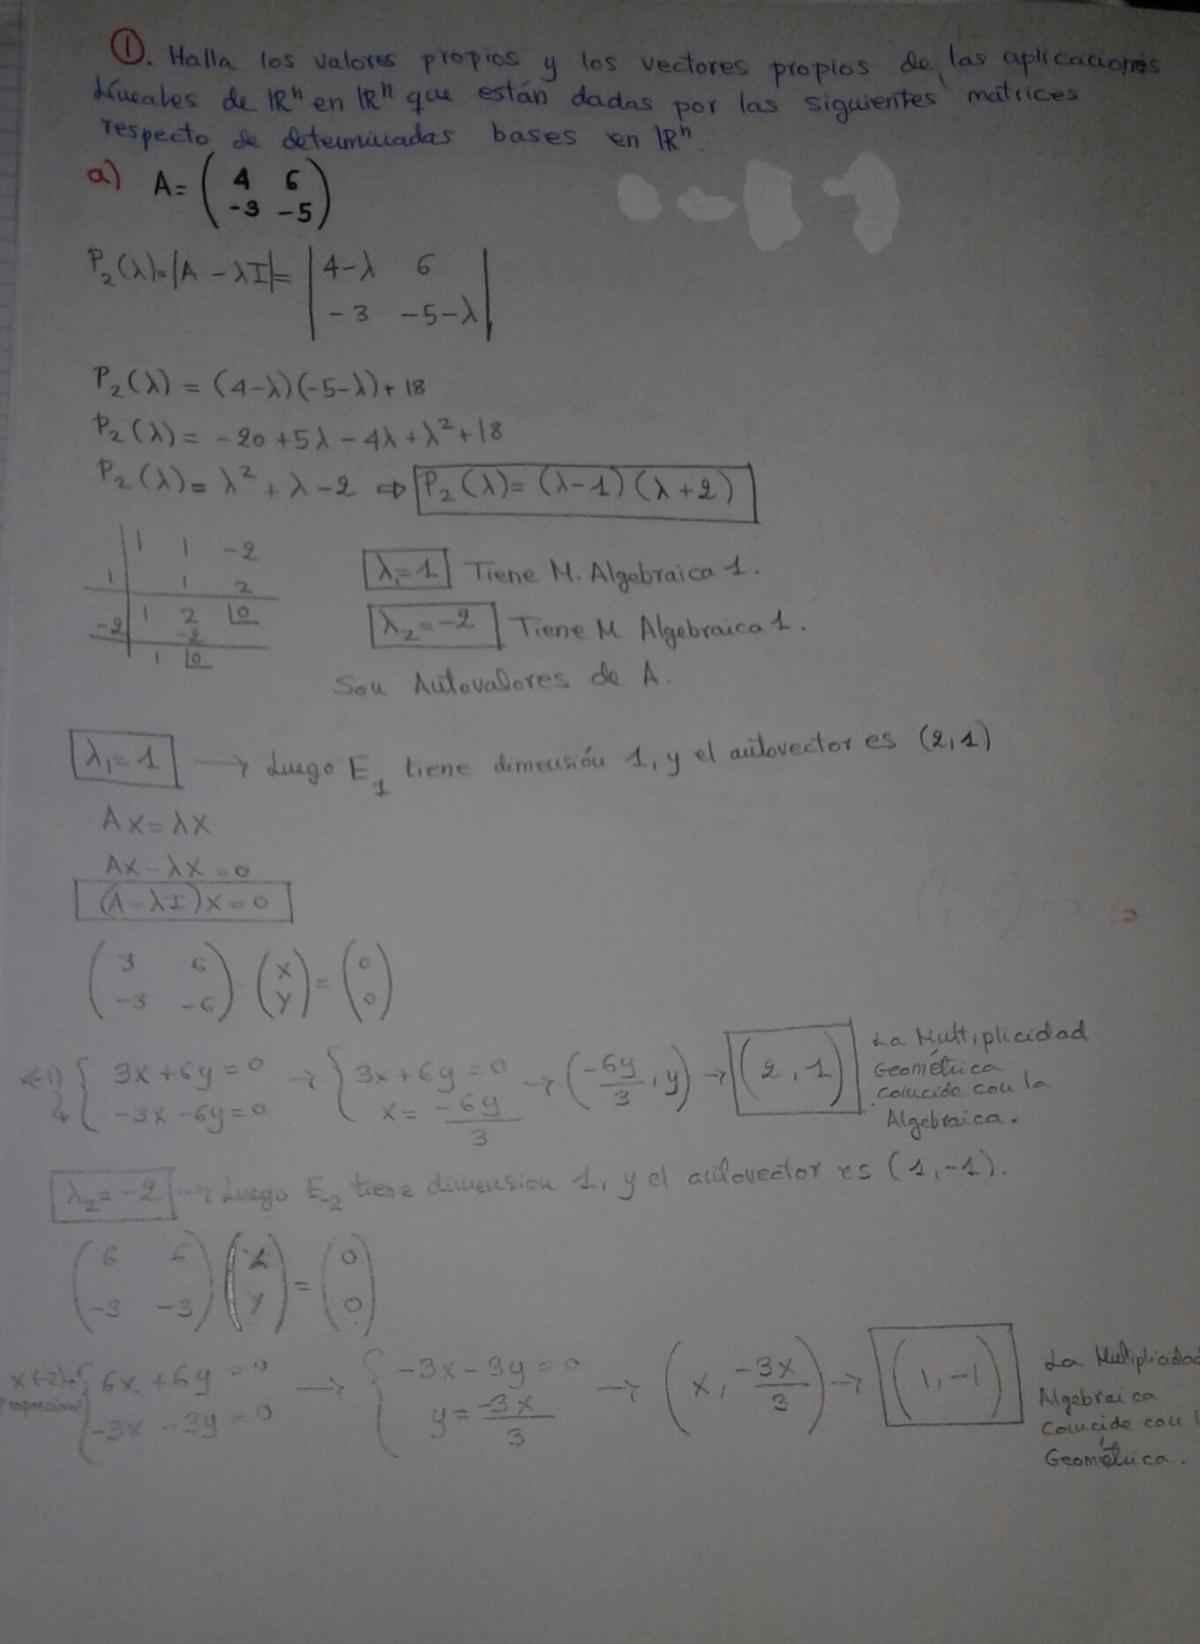 ①. Halla los valores propios y los vectores propios de las aplicaciones
lineales de ℝⁿ en ℝⁿ que están dadas por las siguientes matrices
respecto de determinadas bases en ℝⁿ.
a) A = ( 4 6
-3 -5 )
P₂(λ) = |A - λI| = | 4-λ 6
-3 -5-λ |
P₂(λ) = (4-λ)(-5-λ) + 18
P₂(λ) = -20 + 5λ - 4λ + λ² + 18
P₂(λ) = λ² + λ - 2 ⇒ P₂(λ) = (λ-1)(λ+2)
1 1 -2
1 1 2
1 2 0
-2 -2
1 0
λ₁=1 Tiene M. Algebraica 1.
λ₂=-2 Tiene M Algebraica 1.
Son Autovalores de A.
λ₁=1 → Luego E₁ tiene dimensión 1, y el autovector es (2,1)
AX = λX
AX - λX = 0
(A-λI)X = 0
( 3 6
-3 -6 ) · ( x
y ) = ( 0
0 )
3x+6y=0 → { 3x+6y=0 → (-6y/3, y) → (2,1)
-3x-6y=0 x = -6y/3
La Multiplicidad
Geométrica
coincide con la
Algebraica.
λ₂=-2 → Luego E₋₂ tiene dimension 1, y el autovector es (1,-1).
( 6 6
-3 -3 ) ( x
y ) = ( 0
0 )
6x+6y=0 → { -3x-3y=0 → (x, -3x/3) → (1,-1)
-3x-3y=0 y = -3x/3
La Multiplicidad
Algebraica
Coincide con l
Geométrica.